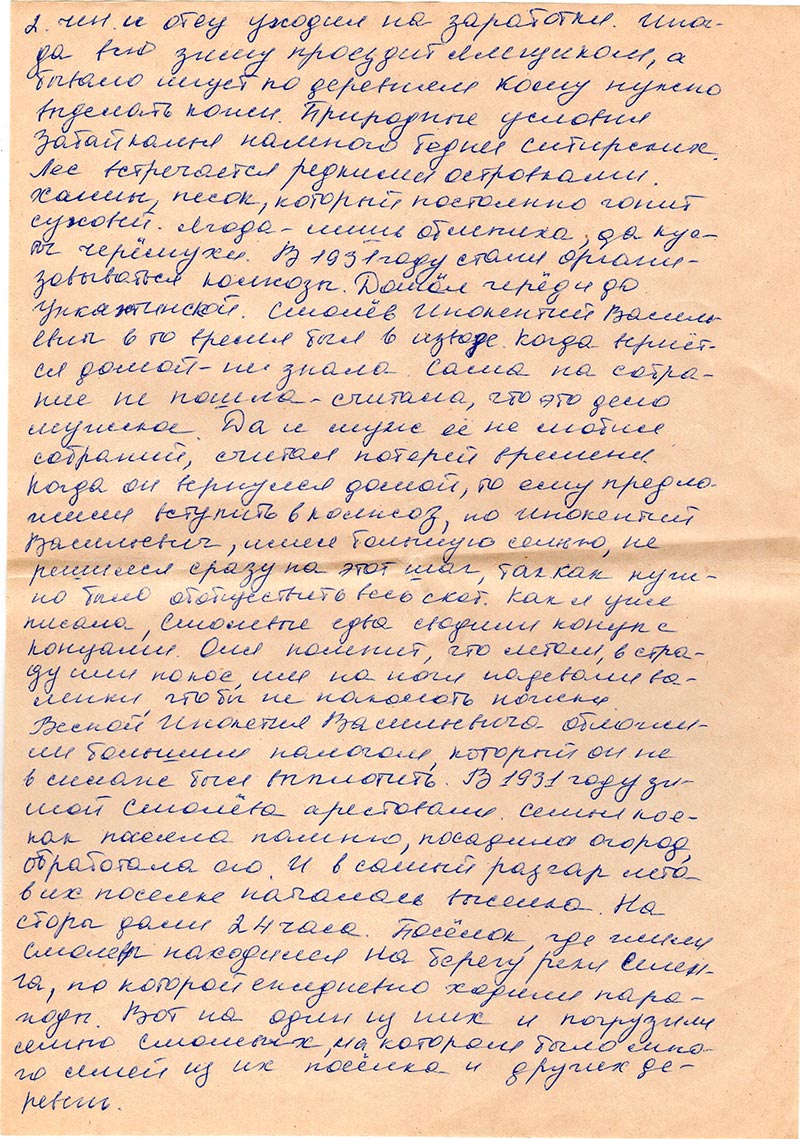 2. чин. и отец уходил на заработки. Ино-
да всю зиму просудит ямщиком, а
бывало идут по деревням кому нужно
выделать кожи. Природные условия
Забайкалья намного беднее сибирских.
Лес встречается редкими островками.
Холмы, песок, который постоянно гонит
суховей. Ягода - лишь облепиха, да кус-
ты черёмухи. В 1931 году стали органи-
зовываться колхозы. Дошёл черёд и до
Смолёв Инокентий Василь-
евич в то время был в извозе. Когда вернёт-
ся домой - не знала. Сама на собра-
ние не пошла - считала, что это дело
мужское. Да и муж её не любил
собраний, считал потерей времени.
Когда он вернулся домой, то ему предло-
жили вступить в колхоз, но Инокентий
Васильевич, имея большую семью, не
решился сразу на этот шаг, так как нуж-
но было обобществить весь скот. Как я уже
писала, Смолевые едва сводили концы с
концами. Оня помнит, что летом, в стра-
ду или покос, им на ноги надевали ва-
ленки, чтобы не наколоть ножки
Весной Инокетия Васильевича обложи-
ли большим налогом, который он не
в силах был выплотить. В 1931 году зи-
мой Смолёва арестовали. Семья кое-
как посеяла пашню, посадила огород,
обработала его. И в самый разгар лета
в их поселке началась высылка. На
сборы дали 24 часа. Посёлок, где жили
Смолевы находился на берегу реки Селен-
га, по которой ежедневно ходили паро-
ходы. Вот на один из них и погрузили
семью Смолевых, на котором было мно-
го семей из их посёлка и других де-
ревень.